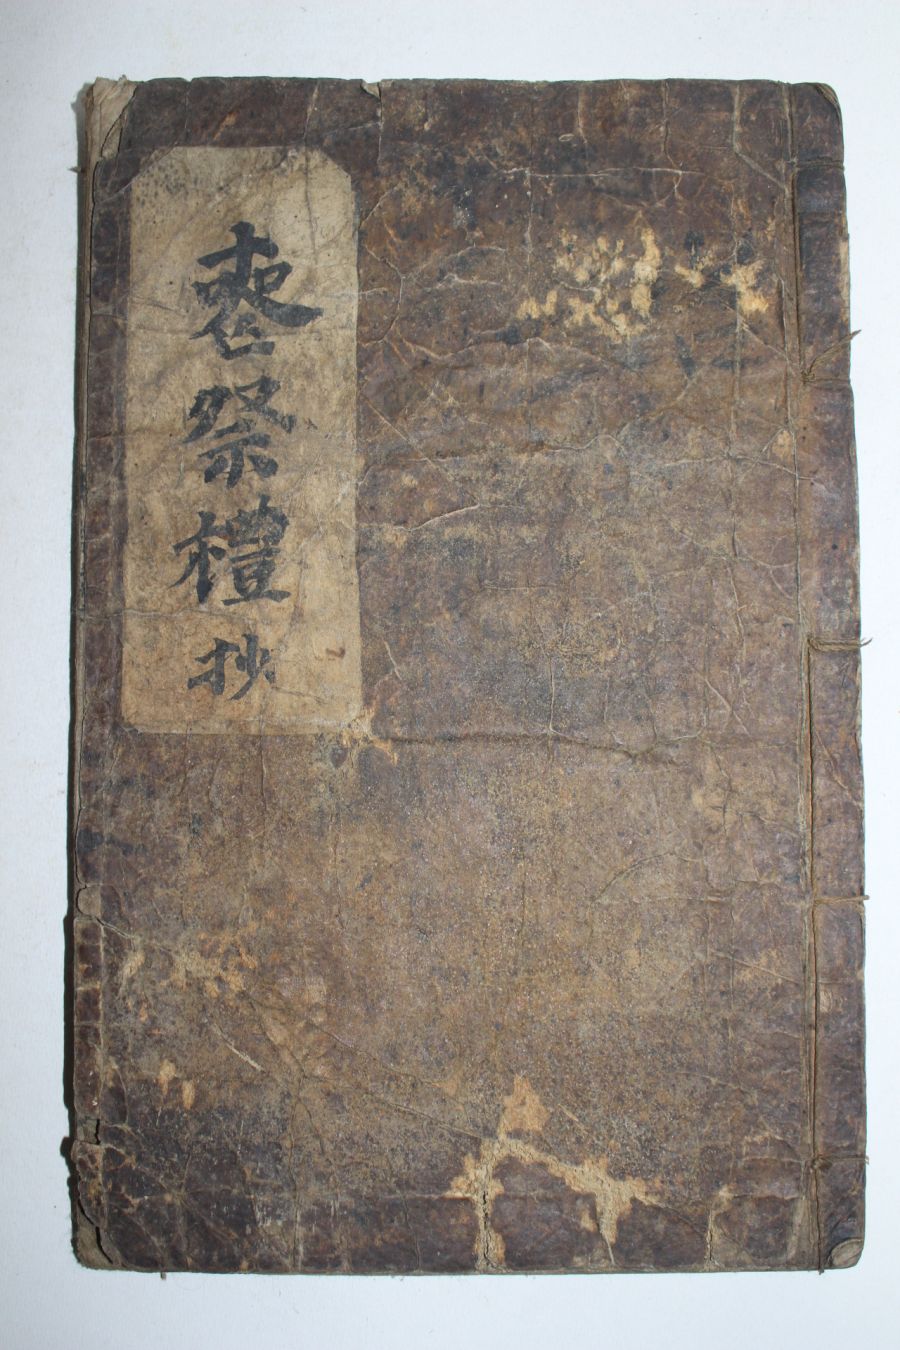 喪祭禮抄